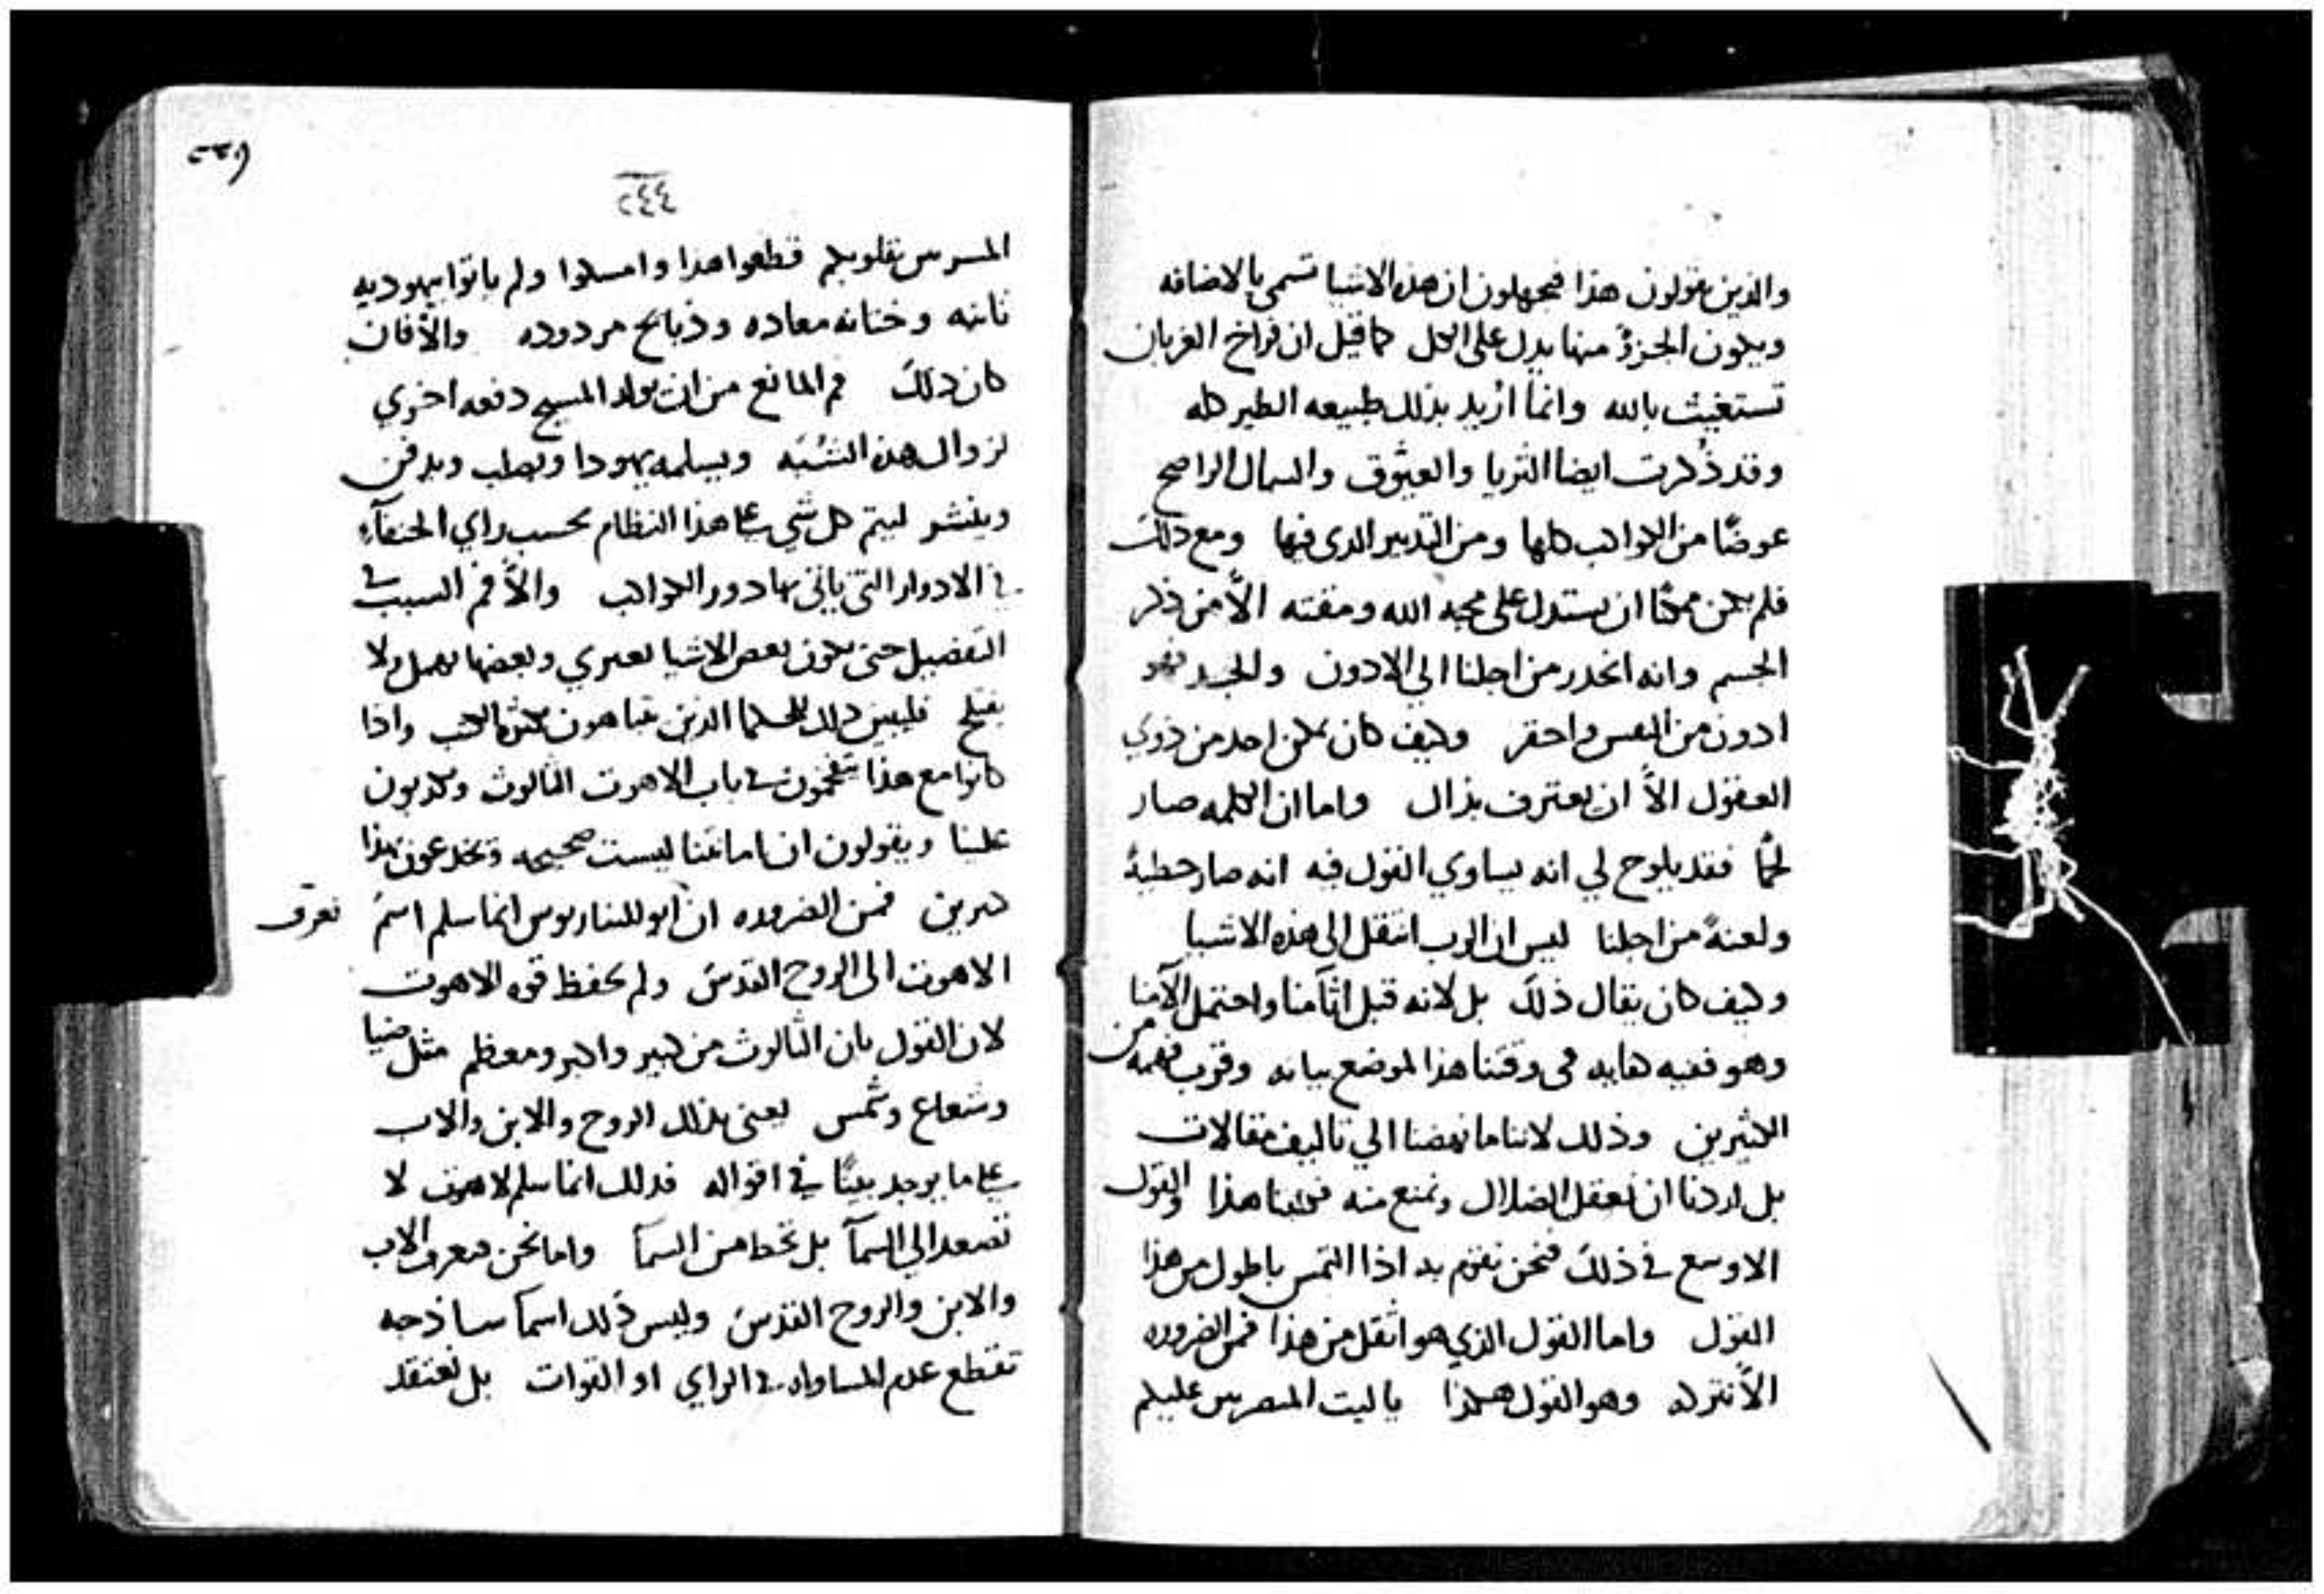 والذين يقولون هذا فيجهلون ان هذه الاشيا تسمى بالاضافه
ويكون الجزؤ منها يدل على الكل كما قيل ان فراخ الغربان
تستغيث بالله وانما اريد بذلك طبيعه الطير كله
وقد ذكرت ايضا الثريا والعيوق والسماك الرامح
عوضًا من الكواكب كلها ومن التدبير الدى فيها ومع ذلك
فلم يكن ممكنًا ان يستدل على محبه الله ومقته الاّ من ذكر
الجسم وانه انحدر من اجلنا الي الادون والجسد فهو
ادون من النفس واحقر وكيف كان يمكن احد من ذوي
العقول الاّ ان يعترف بذاك واما ان الكلمه صار
لحمًا فقد يلوح لي انه يساوي القول فيه انه صار خطيةً
ولعنةً من اجلنا ليس ان الرب انتقل الى هذه الاشيا
وكيف كان يقال ذلك بل لانه قبل اثآمنا واحتمل الآمنا
وهو ففيه كفايه فى وقتنا هذا لموضع بيانه وقرب فهمه من
الكثيرين وذلك لاننا ما نهضنا الي تاليف مقالات
بل اردنا ان نعقل الضلال ونمنع منه فكتبنا هذا والقول
الاوسع في ذلك فنحن نقوم به اذا التمس باطول من هذا
القول واما القول الذي هو اثقل من هذا فمن الضروره
الاّ نتركه وهو القول هكذا ياليت المضربين عليكم
٢٤٤
المسرس بقلوبكم قطعوا هذا وامسكوا ولم ياتوا بيهوديه
ثانيه وختانه معاده وذبايح مردوده والاّ فان
كان ذلك فم المانع من ان يولد المسيح دفعه اخري
لزوال هذه الشبَه ويسلمه يهودا ويصلب ويدفن
وينشر ليتم كل شي على هذا النظام بحسب راي الحنفآء
في الادوار التى ياتى بها دور الكواكب والاّ فم السبب في
التفضيل حتى يكون بعض الاشيا يعتري وبعضها يهمل ولا
يفلح فليبين ذلك الحكما الذين يتباهون بكثره الكتب واذا
كانوا مع هذا يتفخمون في باب لاهوت الثالوث ويكذبون
علينا ويقولون ان امانتنا ليست صحيحه ويخدعون بهذا
كثيرين فمن الضروره ان ابوللناريوس انما سلم اسمَ نعرف
الاهوت الى الروح القدس ولم يحفظ قوه الاهوت
لان القول بان الثالوث من كبير واكبر ومعظم مثل ضيا
وشعاع وشمس يعنى بذلك الروح والابن والاب
على ما يوجد بينًا في اقواله فذلك انما سلم لاهوت لا
تصعد الي السمآ بل تحط من السمآ واما نحن فنعرف الاب
والابن والروح القدس وليس ذلك اسمآ ساذجه
تقتطع عدم المساواه في الراي او القوات بل نعتقد